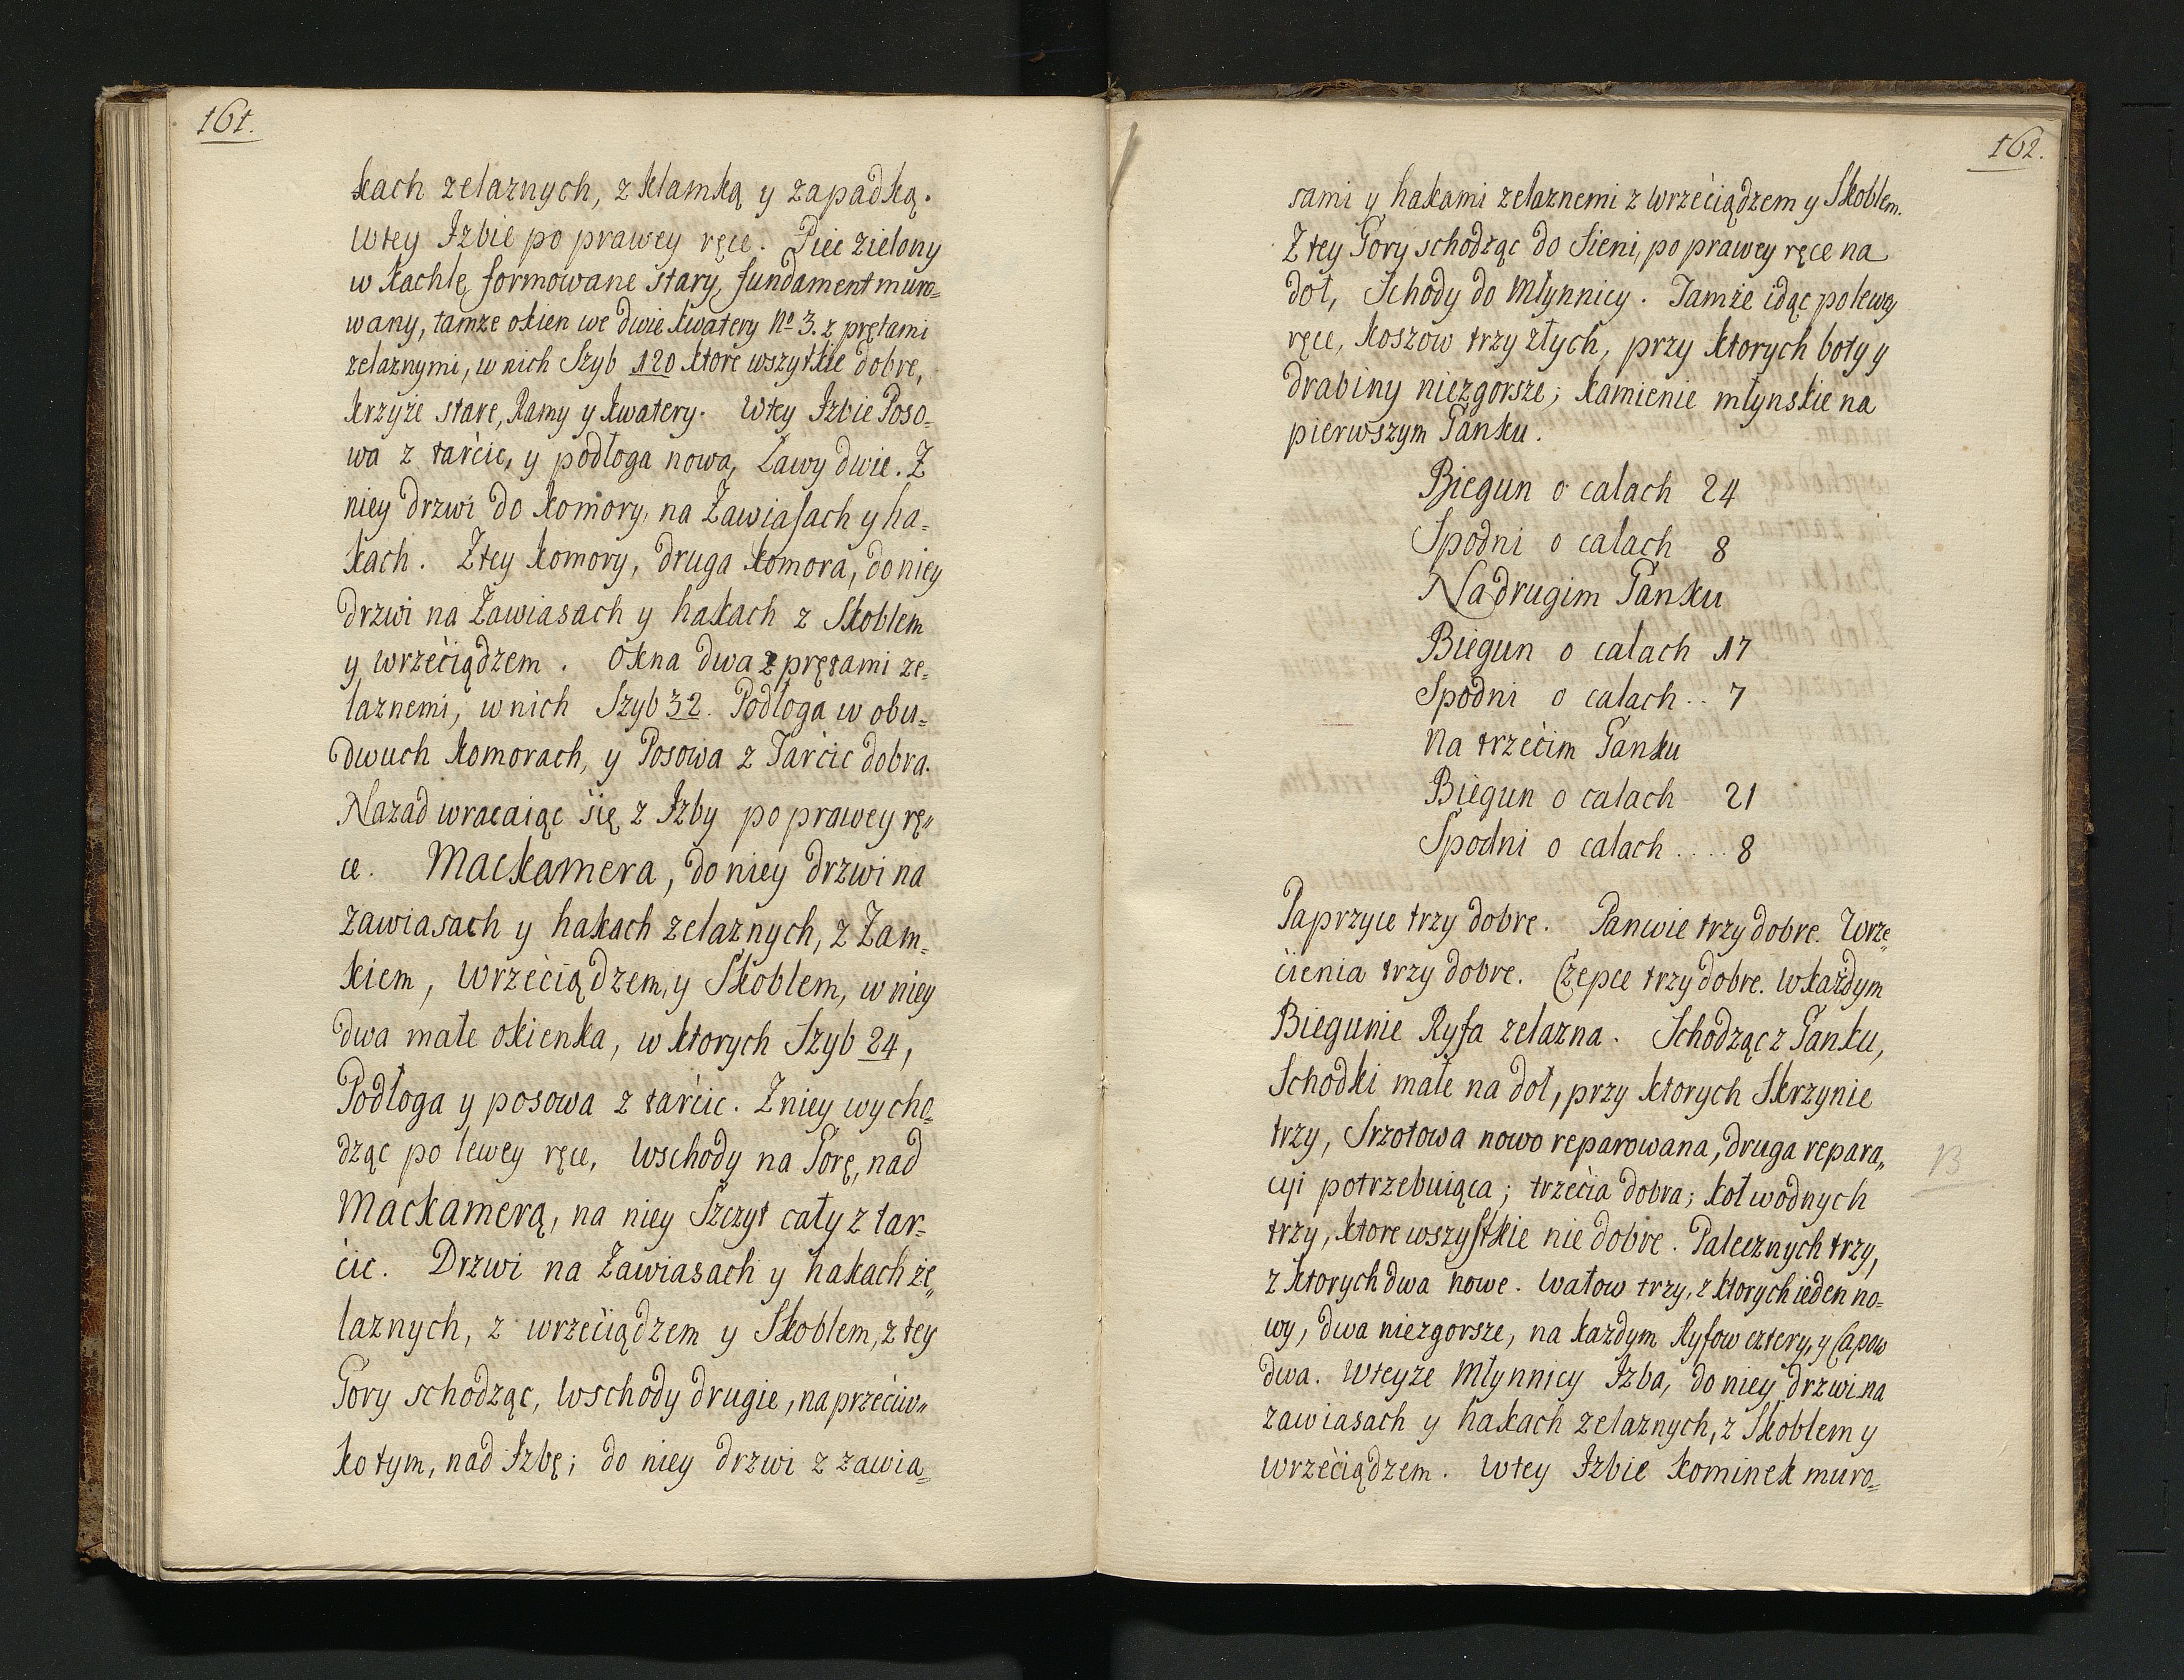 161.
kach zelaznych, z klamką y zapadką.
Wtey Izbie po prawey ręce. Piec zielony
w kachlę formowane stary, fundament muro=
wany, tamze okien we dwie kwatery No 3. z prętami
zelaznymi, w nich Szyb 120 ktore wszytkie dobre,
krzyże stare, Ramy y kwatery. Wtey Izbie Poso=
wa z tarćic, y podłoga nowa, Ławy dwie. Z
niey drzwi do komory, na Zawiasach y ha=
kach. Ztey komory, druga komora, do niey
drzwi na Zawiasach y hakach z Skoblem
y wrzećiądzem. Okna dwa z prętami ze=
laznemi, w nich Szyb 32. Podłoga w obu=
dwuch komorach, y Posowa z Tarćic dobra.
Nazad wracaiąc śię z Izby po prawey rę=
ce. Mackamera, do niey drzwi na
zawiasach y hakach zelaznych, z Zam=
kiem, wrzećiądzem, y Skoblem, w niey
dwa małe okienka, w ktorych Szyb 24,
Podłoga y posowa z tarćic. Z niey wycho=
dząc po lewey ręce, Wschody na Gorę, nad
Mackamerą, na niey Szczyt cały z tar=
ćic. Drzwi na Zawiasach y hakach że=
laznych, z wrzećiądzem y Skoblem, z tey
Gory schodząc, Wschody drugie, na przećiw=
ko tym, nad Izbę; do niey drzwi z zawia=
162.
sami y hakami zelaznemi z wrzećiądzem y Skoblem.
Z tey Gory schodząc do Sieni, po prawey ręce na
doł, Schody do Młynnicy. Tamże idąc po lewey
ręce, koszow trzy złych, przy ktorych boty y
drabiny niezgorsze; kamienie młynskie na
pierwszym Ganku.
Biegun o calach 24
Spodni o calach 8
Na drugim Ganku
Biegun o calach 17
Spodni o calach .. 7
Na trzećim Ganku
Biegun o calach 21
Spodni o calach .... 8
Paprzyce trzy dobre. Panwie trzy dobre. Wrze=
ćienia trzy dobre. Czepce trzy dobre. W każdym
Biegunie Ryfa zelazna. Schodząc z Ganku,
Schodki małe na doł, przy ktorych Skrzynie
trzy, Srzotowa nowo reparowana, druga repara=
cyi potrzebuiąca; trzećia dobra; koł wodnych
trzy, ktore wszystkie nie dobre. Palecznych trzy,
z ktorych dwa nowe. Wałow trzy, z ktorych ieden no=
wy, dwa niezgorsze, na każdym Ryfow cztery, y Capow
dwa. Wteyze Młynnicy Izba, do niey drzwi na
zawiasach y hakach zelaznych, z Skoblem y
wrzećiądzem. Wtey Izbie kominek muro=